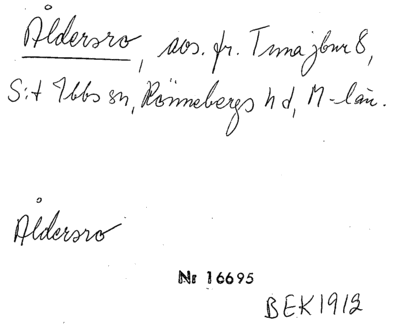 Åldersro, avs. fr. Tuna jbnr 8,
S:t Ibbs sn, Rönnebergs hd, M-län.
Åldersro
Nr 16695
BEK1912